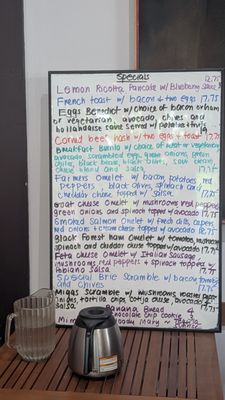 Specials
Lemon Ricotta Pancake w/ Blueberry Sauce 12.75
French toast w/ bacon & two eggs 17.75
Eggs Benedict w/ choice of bacon or ham
or vegetarian, avocado, chives and
hollandaise sauce served w/ potatoes & fruit
19
Corned beef hash w/ two eggs & toast 17.75
Breakfast Burrito w/ choice of meat or vegetarian
avocado, scrambled eggs, green onions, green
chiles, black beans, black olives, sour cream
cheese blend and salsa 17.75
Farmers Omelet w/ bacon, potatoes, red
peppers, black olives, spinach and
cheddar cheese topped w/ salsa 17.75
Goat cheese Omelet w/ mushrooms, red peppers,
green onions and spinach topped w/ avocado 17.75
Smoked Salmon Omelet w/ fresh dill, capers,
red onions & cream cheese topped w/ avocado 18.
Black Forest ham Omelet w/ tomatoes, mushroom,
spinach and cheddar cheese topped w/ avocado 17.75
Feta cheese Omelet w/ Italian Sausage
mushrooms, red peppers & spinach topped w/
salsa 17.75
Special Brie Scramble w/ bacon, tomatoes
and chives 17.75
Migas Scramble w/ mushrooms, roasted
tortilla chips, cotija cheese, avocado &
salsa 17.75
Banana Bread 4
chocolate chip cookie 3